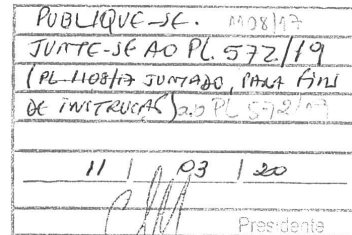 PUBLIQUE-SE. 1108/17
JUNTE-SE AO PL. 572/19
(PL 1108/17 JUNTADO, PARA FINS
DE INSTRUCAS) ao PL 572/17
11 / 03 / 20
Presidente